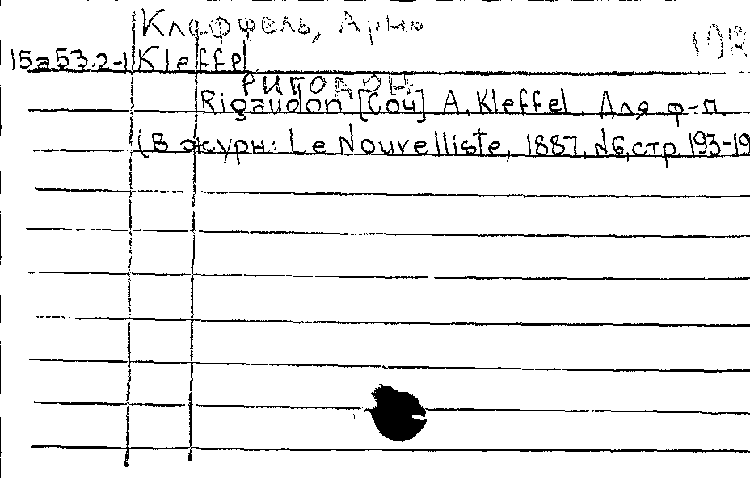 Клеффель, Арно
15а53.2-1 Kleffel
РИГОДОН
Rigaudon [Соч] A. Kleffel Для ф-п.
(В журн: Le Nouvelliste, 1887, №6, стр 193-19